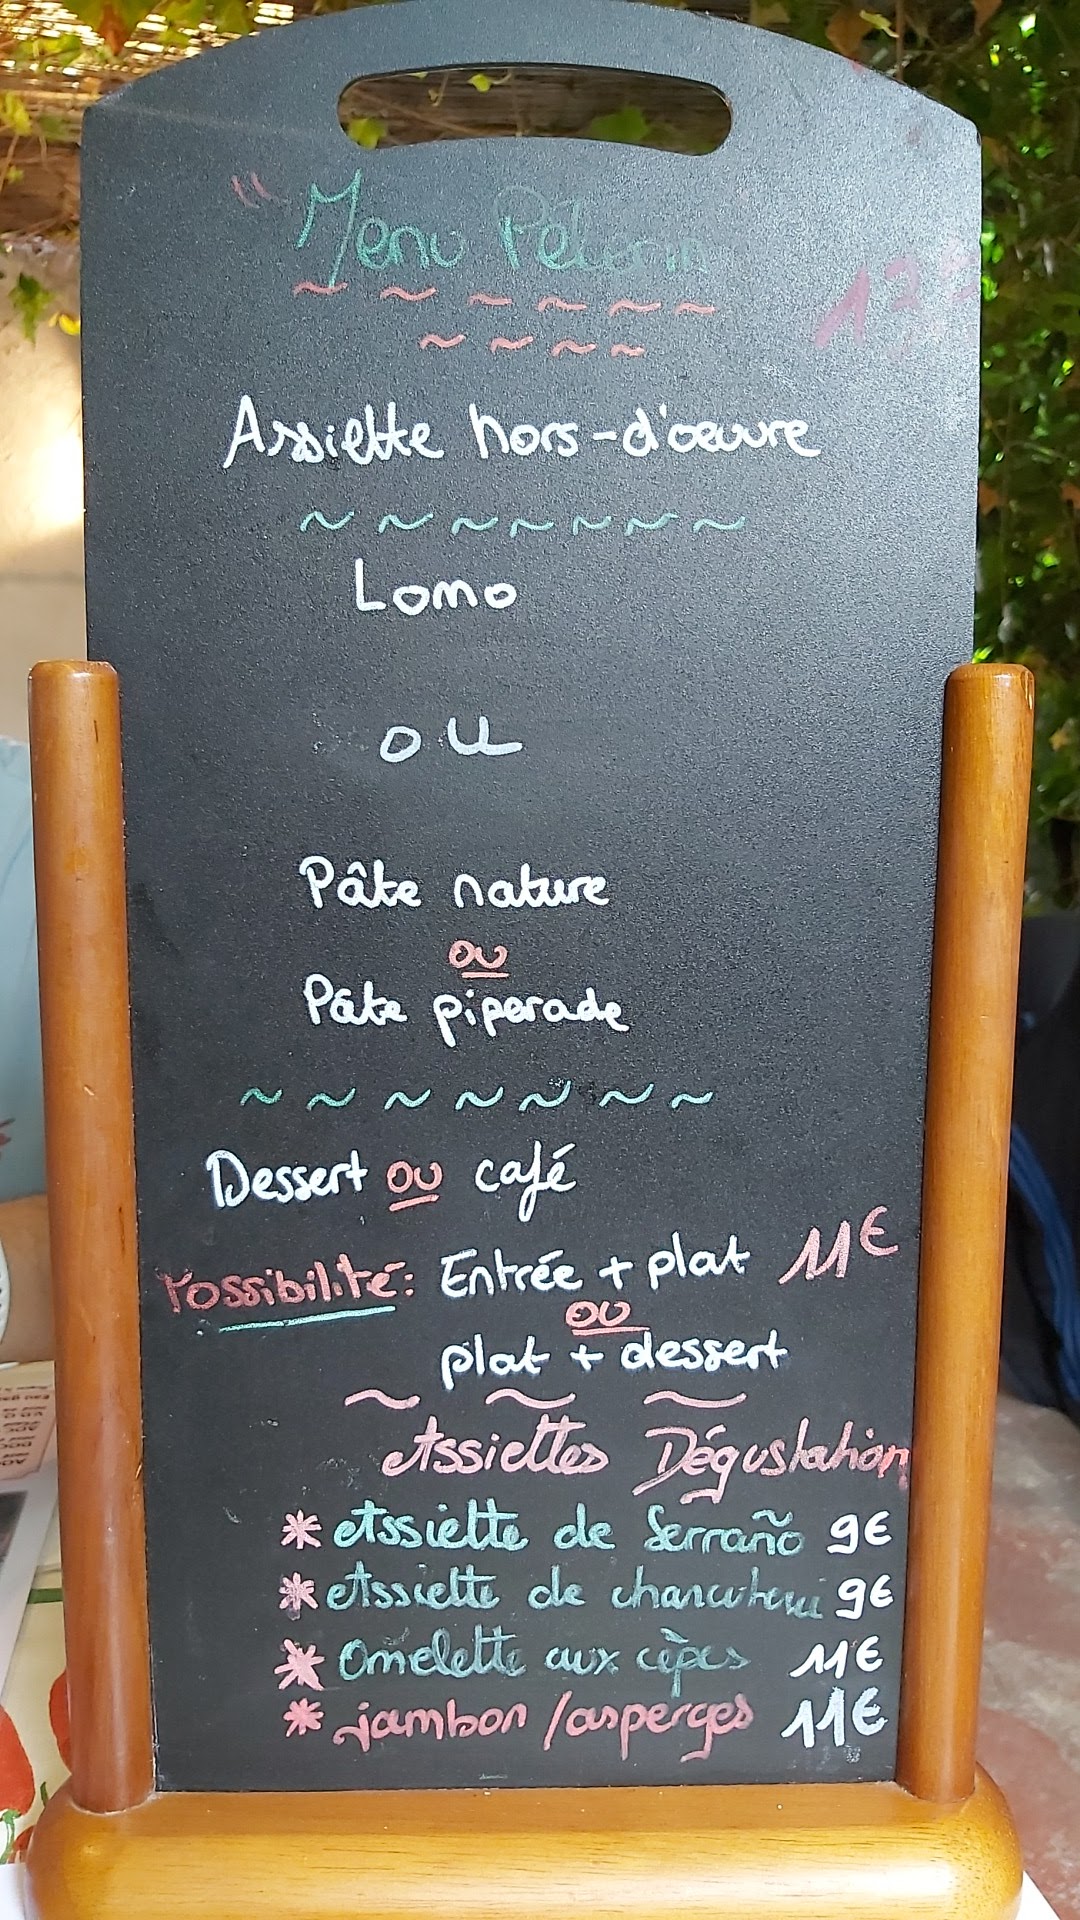 " Menu Pélerin
Assiette hors-d'oeuvre
Lomo
ou
Pâte nature
ou
Pâte piperade
Dessert ou café
Possibilité: Entrée + plat 11€
ou
plat + dessert
Assiettes Dégustation
* Assiette de Serraño 9€
* Assiette de charcuterie 9€
* Omelette aux cèpes 11€
* jambon / asperges 11€